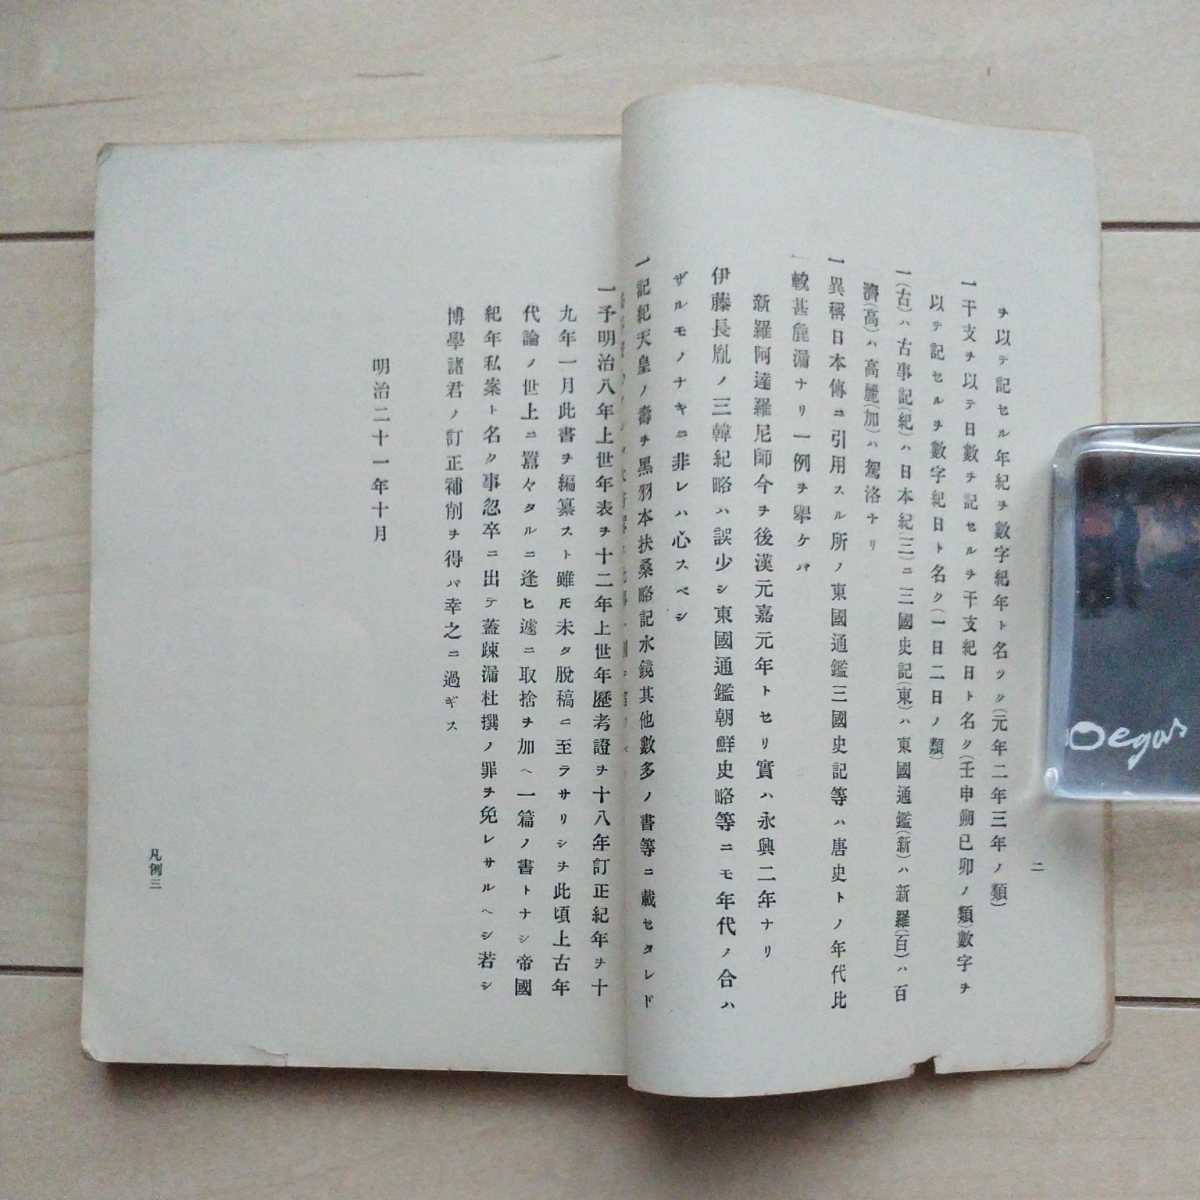 ヲ以テ記セル年紀ヲ數字紀年ト名ツク(元年二年三年ノ類)
一干支ヲ以テ日數ヲ記セルヲ干支紀日ト名ク(壬申朔己卯ノ類)數字ヲ
以テ記セルヲ數字紀日ト名ク(一日二日ノ類)
一(古)ハ古事記(紀)ハ日本紀(三)ニ三國史記(東)ハ東國通鑑(新)ハ新羅(百)ハ百
濟(高)ハ高麗(加)ハ駕洛ナリ
一異稱日本傳ニ引用スル所ノ東國通鑑三國史記等ハ唐史トノ年代比
較甚麁漏ナリ一例ヲ擧ケバ
新羅阿達羅尼師今ヲ後漢元嘉元年トセリ實ハ永興二年ナリ
伊藤長胤ノ三韓紀略ハ誤少シ東國通鑑朝鮮史略等ニモ年代ノ合ハ
ザルモノナキニ非レハ心スベシ
一記紀天皇ノ壽ヲ黑羽本扶桑略記水鏡其他數多ノ書等ニ載セタレド
二
一予明治八年上世年表ヲ十二年上世年歷考證ヲ十八年訂正紀年ヲ十
九年一月此書ヲ編纂スト雖モ未タ脫稿ニ至ラサリシヲ此頃上古年
代論ノ世上ニ囂々タルニ逢ヒ遽ニ取捨ヲ加ヘ一篇ノ書トナシ帝國
紀年私案ト名ク事忽卒ニ出テ蓋疎漏杜撰ノ罪ヲ免レサルヘシ若シ
博學諸君ノ訂正補削ヲ得バ幸之ニ過ギス
明治二十一年十月
凡例三
Degas